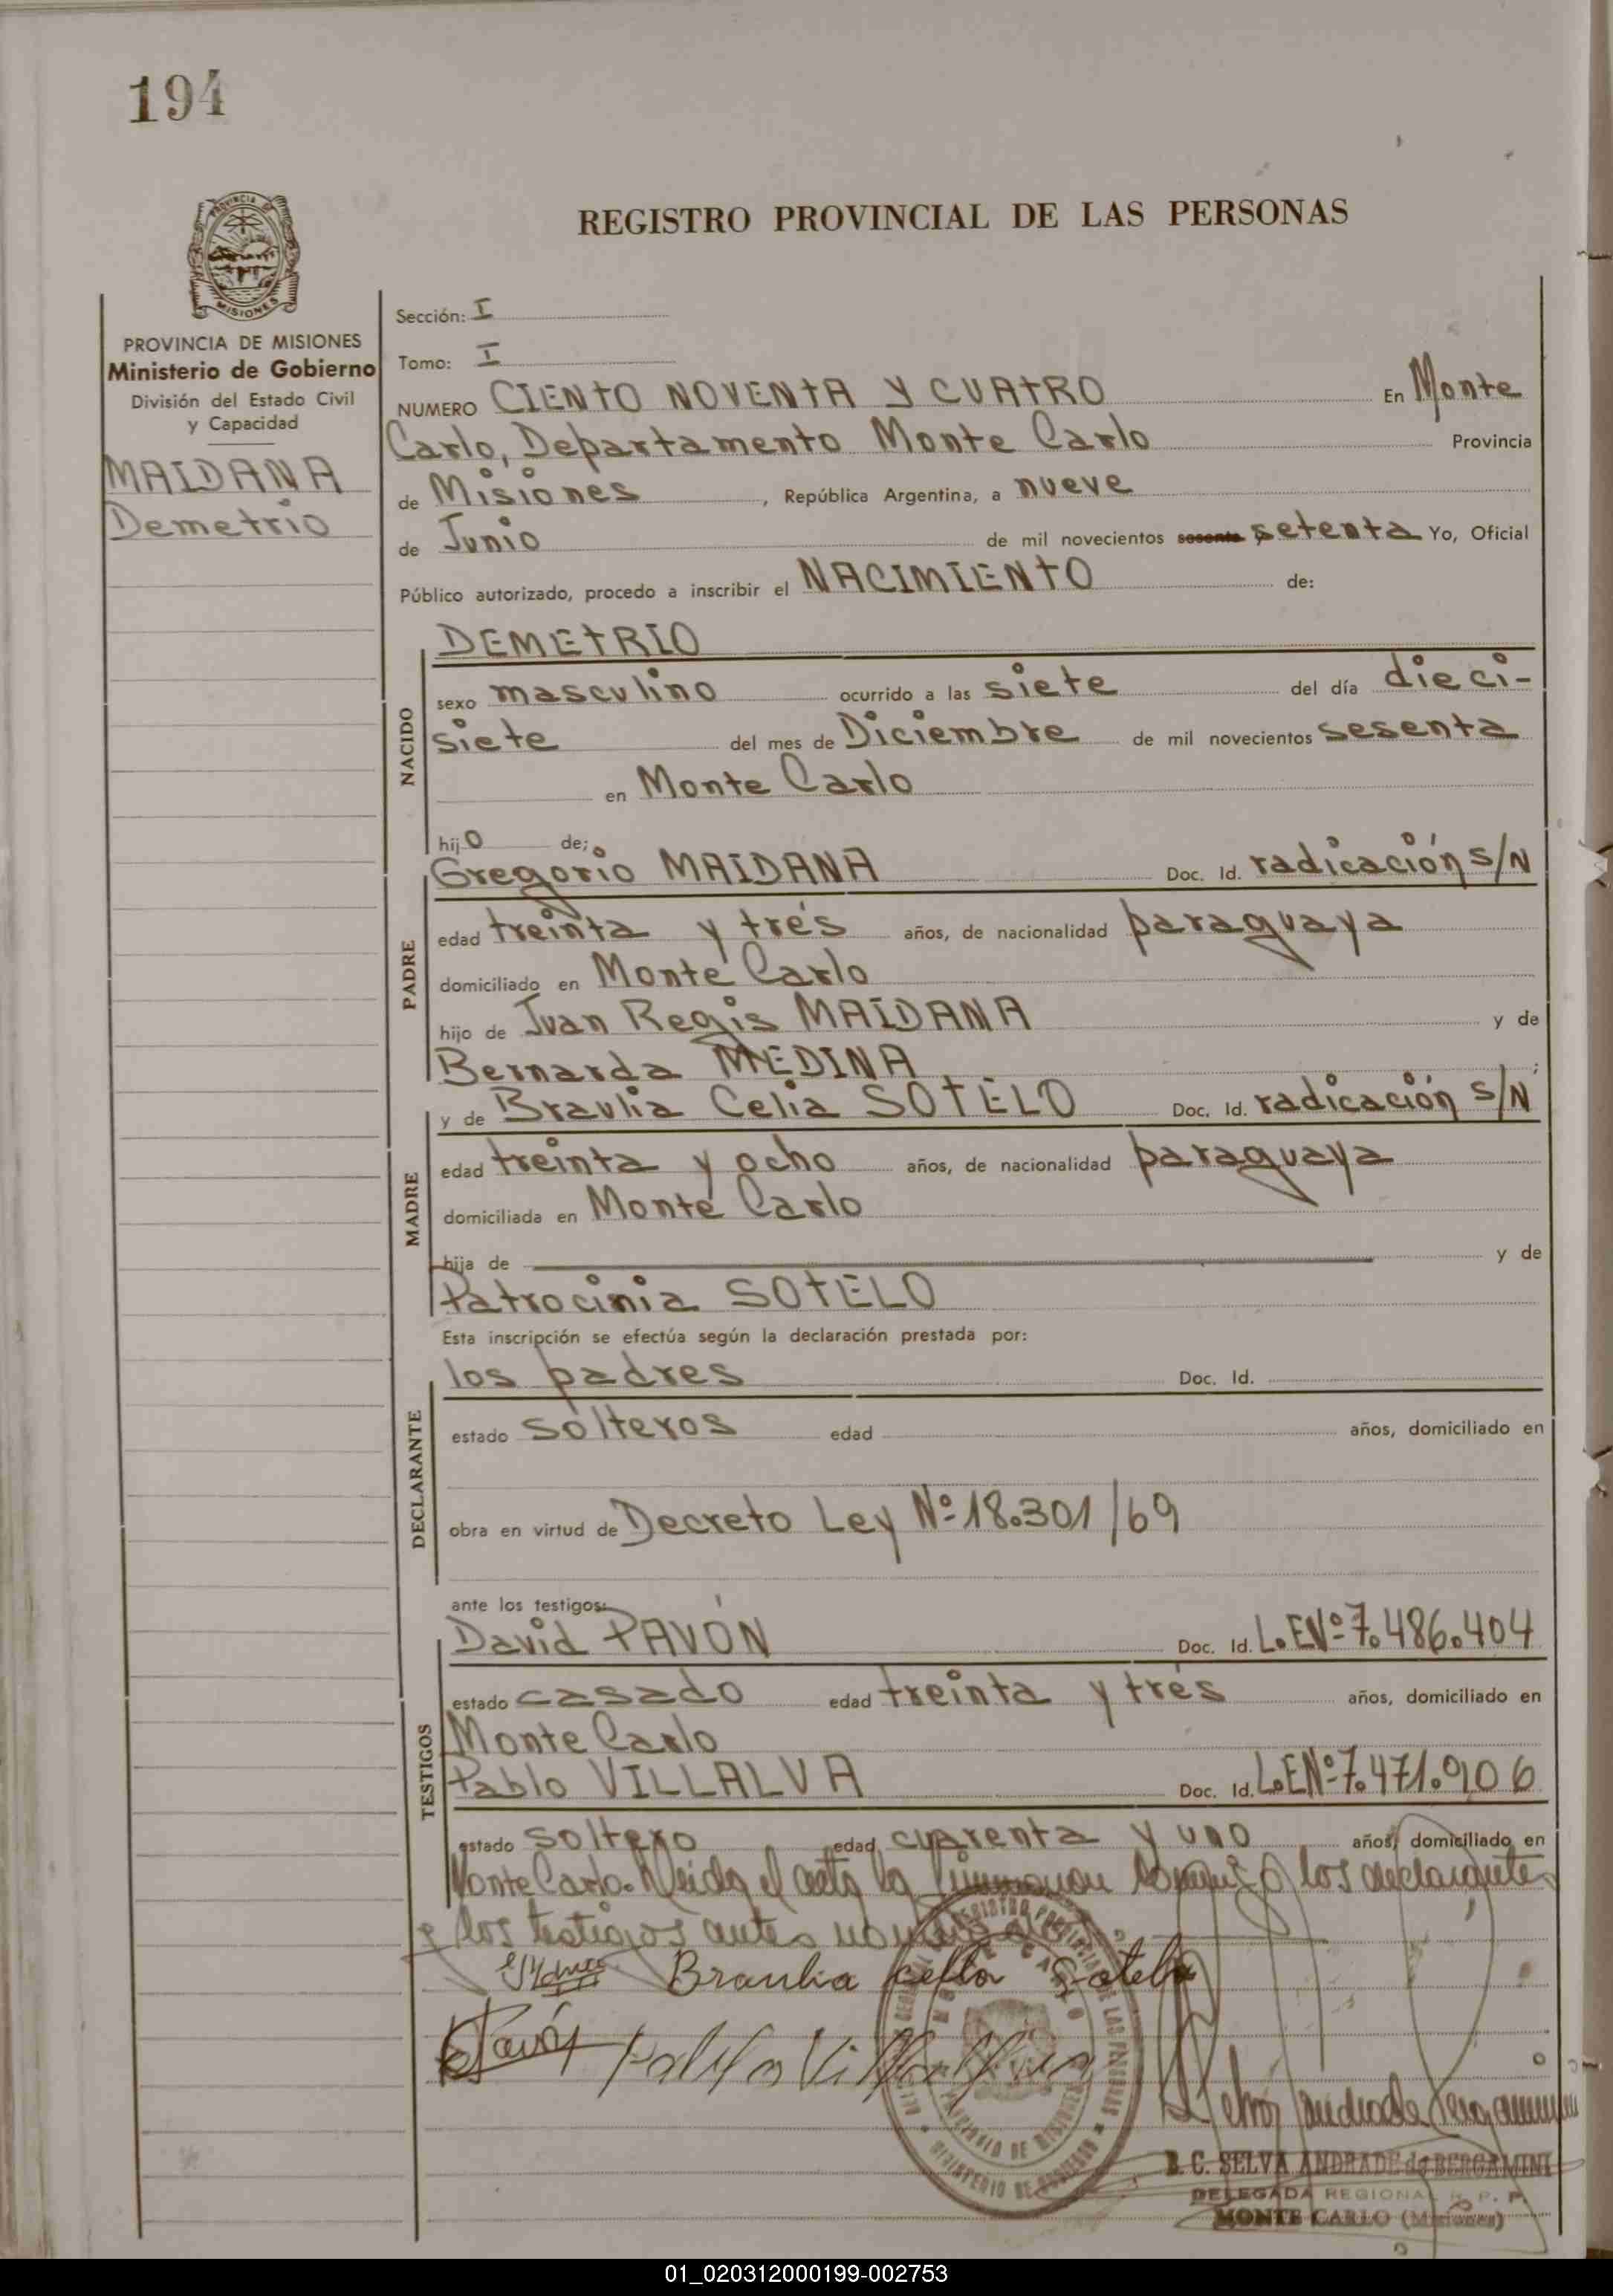 194
PROVINCIA DE MISIONES
REGISTRO PROVINCIAL DE LAS PERSONAS
PROVINCIA DE MISIONES
Ministerio de Gobierno
División del Estado Civil
y Capacidad
MAIDANA
Demetrio
Sección: I
Tomo: I
NUMERO CIENTO NOVENTA Y CUATRO En Monte
Carlo, Departamento Monte Carlo Provincia
de Misiones, República Argentina, a nueve
de Junio de mil novecientos sesenta setenta Yo, Oficial
Público autorizado, procedo a inscribir el NACIMIENTO de:
NACIDO
DEMETRIO
sexo masculino ocurrido a las siete del día dieci-
siete del mes de Diciembre de mil novecientos sesenta
en Monte Carlo
hijo de;
PADRE
Gregorio MAIDANA Doc. Id. radicación S/N
edad treinta y trés años, de nacionalidad paraguaya
domiciliado en Monte Carlo
hijo de Juan Regis MAIDANA y de
Bernarda MEDINA;
MADRE
y de Braulia Celia SOTELO Doc. Id. radicación S/N
edad treinta y ocho años, de nacionalidad paraguaya
domiciliada en Monte Carlo
hija de y de
Patrocinia SOTELO
Esta inscripción se efectúa según la declaración prestada por:
DECLARANTE
los padres Doc. Id.
estado solteros edad años, domiciliado en
obra en virtud de Decreto Ley Nº 18.301/69
ante los testigos:
TESTIGOS
David PAVÓN Doc. Id. L.E Nº 7.486.404
estado casado edad treinta y trés años, domiciliado en
Monte Carlo
Pablo VILLALVA Doc. Id. L.E Nº 7.471.906
estado soltero edad cuarenta y uno años, domiciliado en
Monte Carlo. Leida el acta la los declarantes
y los testigos antes
Braulia Celia Sotelo
Pavón Pablo Villalva
B. C. SELVA ANDRADE de BERGAMINI
DELEGADA REGIONAL R. P. P.
MONTE CARLO (Misiones)
01_020312000199-002753